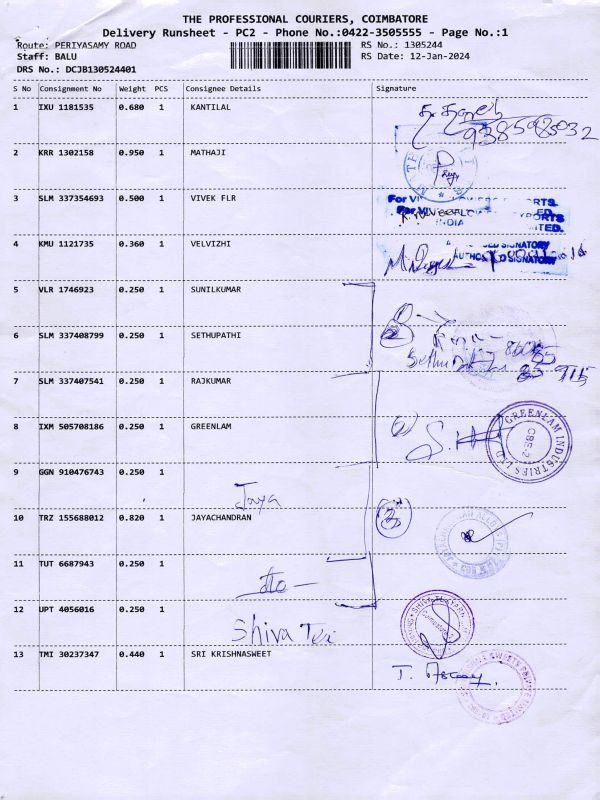 THE PROFESSIONAL COURIERS, COIMBATORE
Delivery Runsheet - PC2 - Phone No.:0422-3505555 - Page No.:1
Route: PERIYASAMY ROAD RS No.: 1305244
Staff: BALU RS Date: 12-Jan-2024
DRS No.: DCJB130524401
S No Consignment No Weight PCS Consignee Details Signature
1 IXU 1181535 0.680 1 KANTILAL
2 KRR 1302158 0.950 1 MATHAJI
3 SLM 337354693 0.500 1 VIVEK FLR
For VI
INDIA
4 KMU 1121735 0.360 1 VELVIZHI
AUTHORISED SIGNATORY
5 VLR 1746923 0.250 1 SUNILKUMAR
6 SLM 337408799 0.250 1 SETHUPATHI
7 SLM 337407541 0.250 1 RAJKUMAR
8 IXM 505708186 0.250 1 GREENLAM
GREENLAM INDUSTRIES LTD
CBE-2
9 GGN 910476743 0.250 1
Jaya
10 TRZ 155688012 0.820 1 JAYACHANDRAN
11 TUT 6687943 0.250 1
12 UPT 4056016 0.250 1
Shiva Tex
13 TMI 30237347 0.440 1 SRI KRISHNASWEET